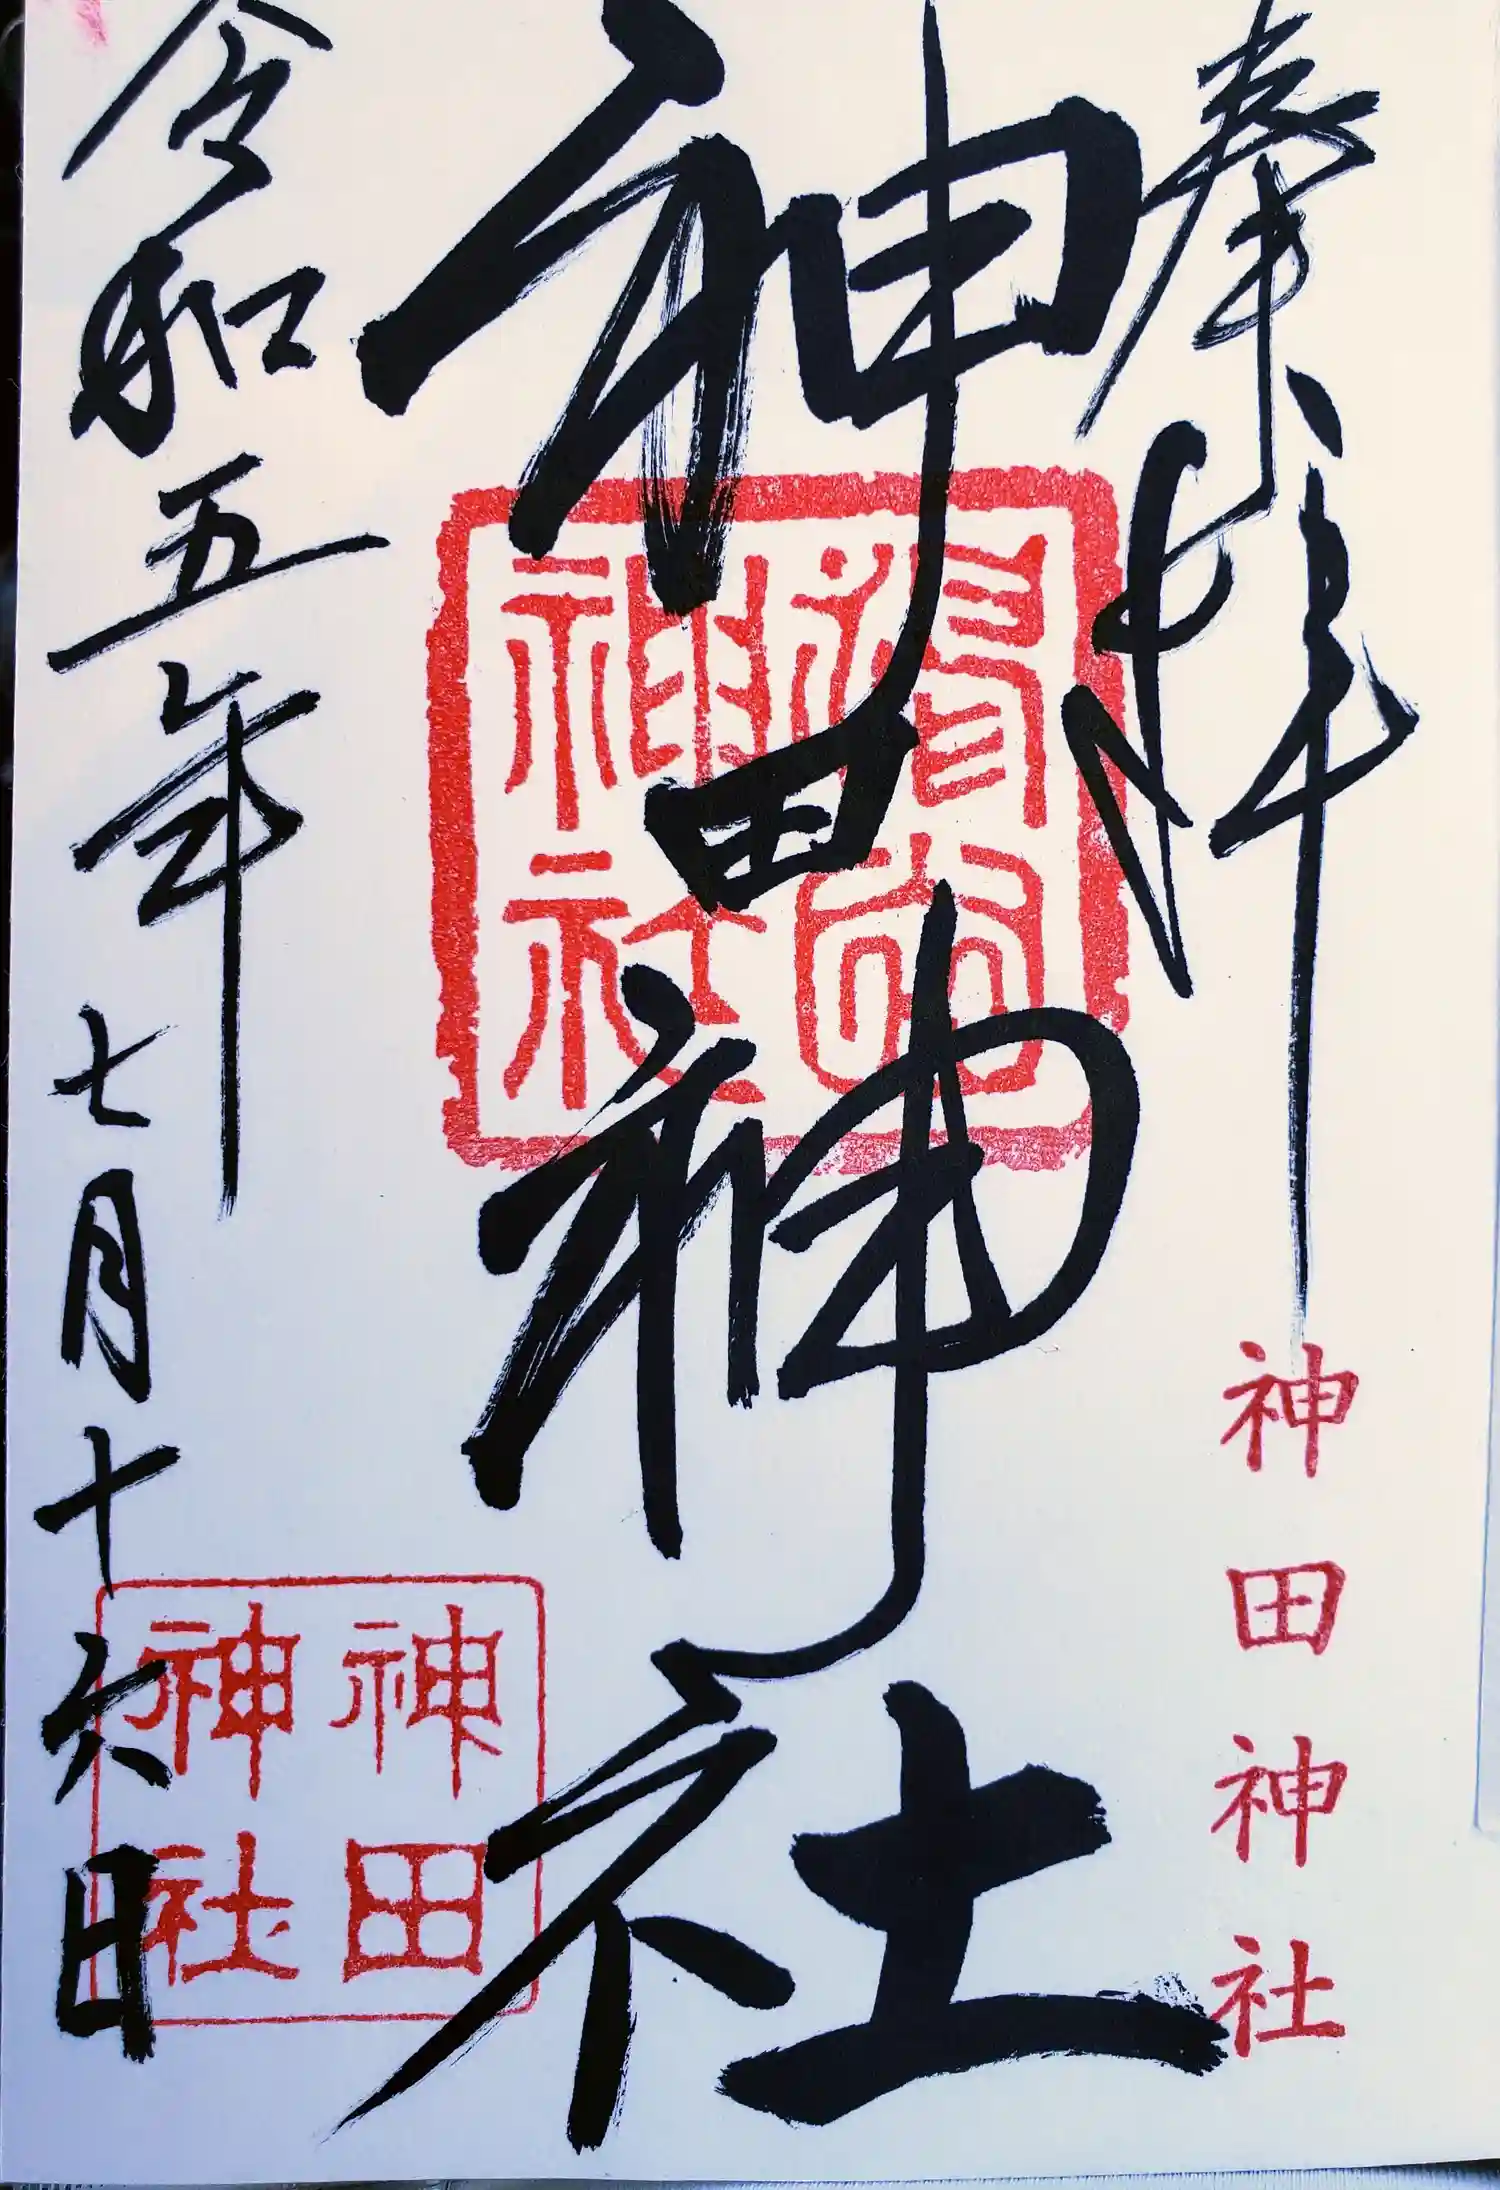 奉拝
神田神社
神田神社
神田
神社
神社
令和五年七月十六日